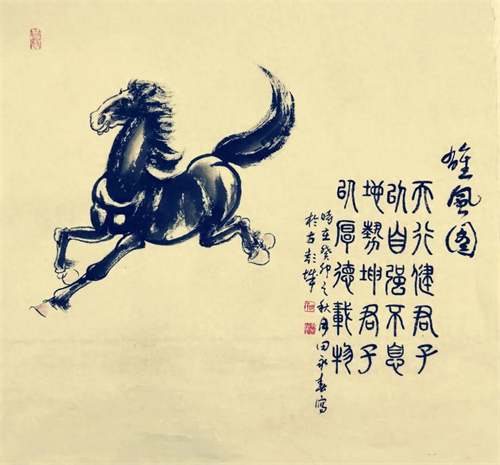 雄風圖
天行健君子
以自強不息
地勢坤君子
以厚德載物
時在癸卯之秋月田永春寫
於古彭城